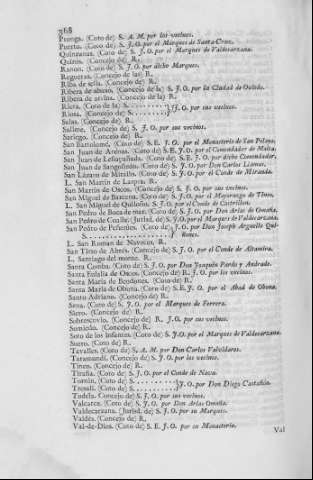 368
Pronga. (Coto de) S. A. M. por los vecinos.
Puerto. (Coto de) S. J. O. por el Marques de Santa Cruz.
Quinzanas. (Coto de) S. J. O. por el Marques de Valdecarzana.
Quirós. (Concejo de) R.
Ranon. (Coto de) S. J. O. por dicho Marques.
Regueras. (Concejo de las) R.
Riba de sella. (Concejo de) R.
Ribera de abaxo. (Concejo de la) S. J. O. por la Ciudad de Oviedo.
Ribera de arriba. (Concejo de la) R.
Riera. (Coto de la) S.
Riosa. (Concejo de) S. J. O. por sus vecinos.
Salas. (Concejo de) R.
Salime. (Concejo de) S. J. O. por sus vecinos.
Sariego. (Concejo de) R.
San Bartolomé. (Coto de) S. E. J. O. por el Monasterio de San Pelayo.
San Juan de Arenas. (Coto de) S. E. J. O. por el Comendador de Malta.
San Juan de (Coto de) S. E. J. O. por dicho Comendador.
San Juan de (Coto de) S. J. O. por Don Carlos
San Lázaro de (Coto de) S. J. O. por el Conde de Miranda.
L. San Martin de R.
San Martin de Oscos. (Concejo de) S. J. O. por sus vecinos.
San Miguel de Barcena. (Coto de) S. J. O. por el Mayorazgo de Tineo.
L. San Miguel de Quiloño. S. J. O. por el Conde de Castrillon.
San Pedro de Boca de mar. (Coto de) S. J. O. por Don Arias de Omaña.
San Pedro de (Jurisd. de) S. J. O. por el Marques de Valdecarzana.
San Pedro de (Coto de) J. O. por Don Joseph Arguelle Qui-
S. ñones.
L. San Roman de R.
San Tirso de Abres. (Concejo de) S. J. O. por el Conde de Altamira.
L. Santiago del monte. R.
Santa Comba. (Coto de) S. J. O. por Don Joaquin Pardo y Andrade.
Santa Eulalia de Oscos. (Concejo de) R. J. O. por los vecinos.
Santa María de (Coto de) R.
Santa María de Obona. (Coto de) S. E. J. O. por el Abad de Obona.
Santo Adriano. (Concejo de) R.
Seva. (Coto de) S. J. O. por el Marques de Ferrera.
Siero. (Concejo de) R.
Sobrescovio. (Concejo de) R. J. O. por sus vecinos.
Somiedo. (Concejo de) R.
Soto de los infantes. (Coto de) S. J. O. por el Marques de Valdecarzana.
Suero. (Coto de) R.
Tavalles. (Coto de) S. A. M. por Don Carlos Valvidares.
Taramundi. (Concejo de) S. J. O. por los vecinos.
Tineo. (Concejo de) R.
Tiraña. (Coto de) S. J. O. por el Conde de Nava.
Tormin. (Coto de) S.
Tresali. (Coto de) S. J. O. por Don Diego Castañon.
Tudela. (Concejo de) S. J. O. por sus vecinos.
Valcarce. (Coto de) S. J. O. por Don Arias Omaña.
Valdecarzana. (Jurisd. de) S. J. O. por su Marques.
Valdés. (Concejo de) R.
Val-de-Dios. (Coto de) S. E. J. O. por su Monasterio.
Val